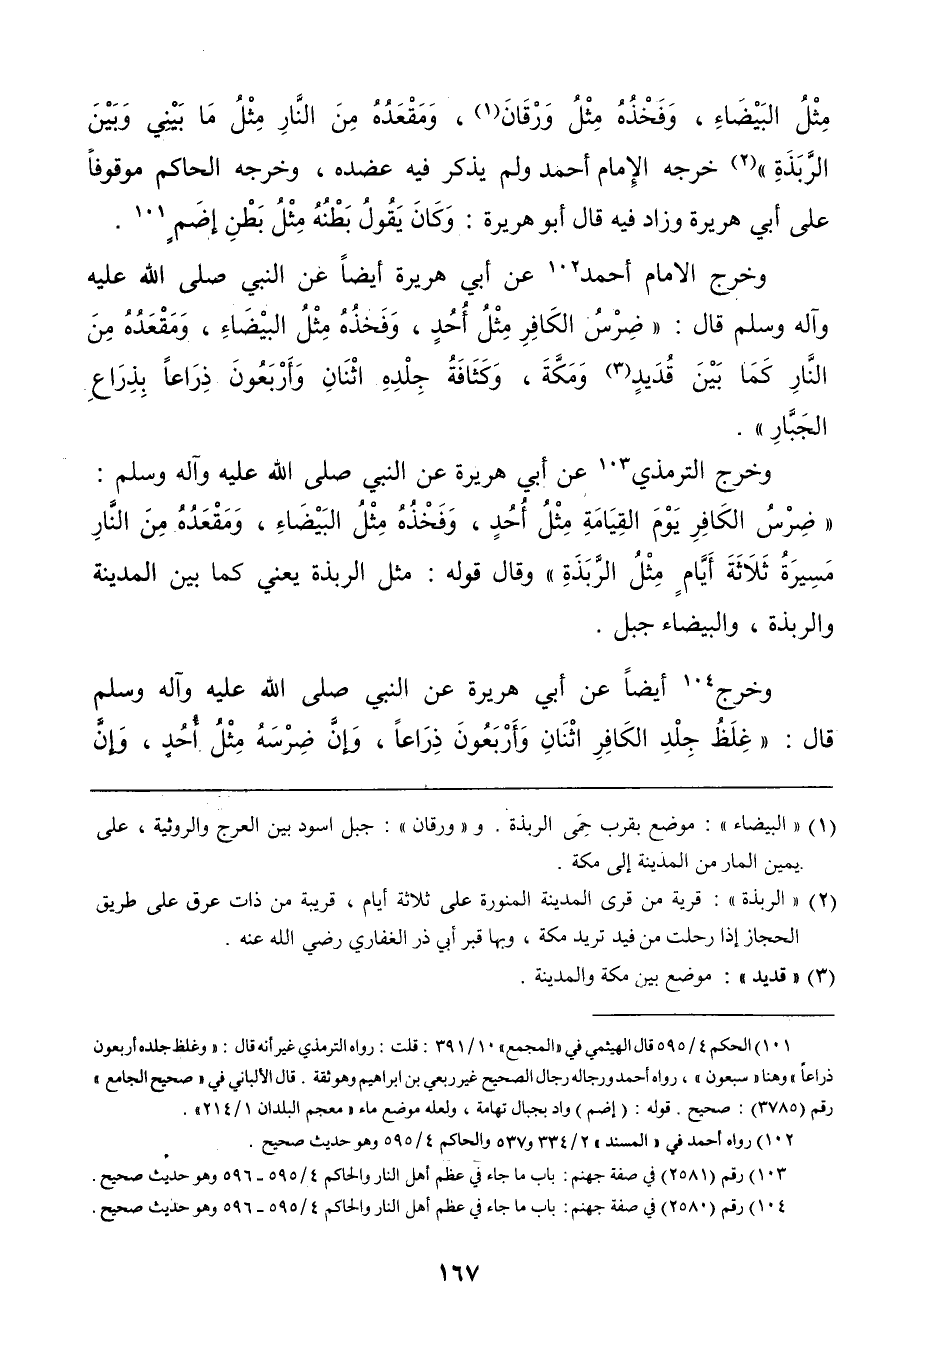 مِثْلُ البَيْضَاءِ ، وَفَخْذُهُ مِثْلُ وَرْقَانَ(١) ، وَمَقْعَدُهُ مِنَ النَّارِ مِثْلُ مَا بَيْنِي وَبَيْنَ
الرَّبَذَةِ »(٢) خرجه الإِمام أحمد ولم يذكر فيه عضده ، وخرجه الحاكم موقوفاً
على أبي هريرة وزاد فيه قال أبو هريرة : وَكَانَ يَقُولُ بَطْنُهُ مِثْلُ بَطْنِ إِضَمٍ ١٠١ .
وخرج الامام أحمد١٠٢ عن أبي هريرة أيضاً عَن النبي صلى الله عليه
وآله وسلم قال : « ضِرْسُ الكَافِرِ مِثْلُ أُحُدٍ ، وَفَخْذُهُ مِثْلُ البَيْضَاءِ ، وَمَقْعَدُهُ مِنَ
النَّارِ كَمَا بَيْنَ قُدَيدٍ(٣) وَمَكَّةَ ، وَكَثَافَةُ جِلْدِهِ اثْنَانِ وَأَرْبَعُونَ ذِرَاعاً بِذِرَاعِ
الجَبَّارِ » .
وخرج الترمذي١٠٣ عن أبي هريرة عن النبي صلى الله عليه وآله وسلم :
« ضِرْسُ الكَافِرِ يَوْمَ القِيَامَةِ مِثْلُ أُحُدٍ ، وَفَخْذُهُ مِثْلُ البَيْضَاءِ ، وَمَقْعَدُهُ مِنَ النَّارِ
مَسِيرَةُ ثَلَاثَةَ أَيَّامٍ مِثْلُ الرَّبَذَةِ » وقال قوله : مثل الربذة يعني كما بين المدينة
والربذة ، والبيضاء جبل .
وخرج١٠٤ أيضاً عن أبي هريرة عن النبي صلى الله عليه وآله وسلم
قال : « غِلَظُ جِلْدِ الكَافِرِ اثْنَانِ وَأَرْبَعُونَ ذِرَاعاً ، وَإِنَّ ضِرْسَهُ مِثْلُ أُحُدٍ ، وَإِنَّ
(١) « البيضاء » : موضع بقرب حِمَى الربذة . و « ورقان » : جبل اسود بين العرج والروثية ، على
يمين المار من المدينة إلى مكة .
(٢) « الربذة » : قرية من قرى المدينة المنورة على ثلاثة أيام ، قريبة من ذات عرق على طريق
الحجاز إذا رحلت من فيد تريد مكة ، وبها قبر أبي ذر الغفاري رضي الله عنه .
(٣) « قديد » : موضع بين مكة والمدينة .
١٠١) الحكم ٥٩٥/٤ قال الهيثمي في «المجمع» ٣٩١/١٠ : قلت : رواه الترمذي غير أنه قال : « وغلظ جلده أربعون
ذراعاً » وهنا « سبعون » ، رواه أحمد ورجاله رجال الصحيح غير ربعي بن ابراهيم وهو ثقة . قال الألباني في « صحيح الجامع »
رقم (٣٧٨٥) : صحيح . قوله : ( إضم ) واد بجبال تهامة ، ولعله موضع ماء « معجم البلدان ٢١٤/١» .
١٠٢) رواه أحمد في « المسند » ٣٣٤/٢ و٥٣٧ والحاكم ٥٩٥/٤ وهو حديث صحيح .
١٠٣) رقم (٢٥٨١) في صفة جهنم : باب ما جاء في عظم أهل النار والحاكم ٥٩٥/٤ ـ ٥٩٦ وهو حديث صحيح .
١٠٤) رقم (٢٥٨٠) في صفة جهنم : باب ما جاء في عظم أهل النار والحاكم ٥٩٥/٤ ـ ٥٩٦ وهو حديث صحيح .
١٦٧